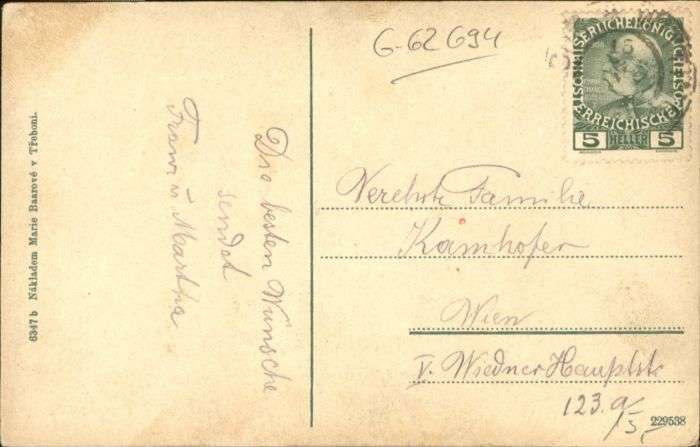 6347 b Nákladem Marie Baarové v Třeboni.
Die besten Wünsche
sendet
Franz u Martha
G-62 694
KAISERLICHE KÖNIGLICHE
ÖSTERREICHISCHE
5 HELLER 5
Verehrte Familie
Kamhofer
Wien
V. Wiedner Hauptstr
123. a/
229538